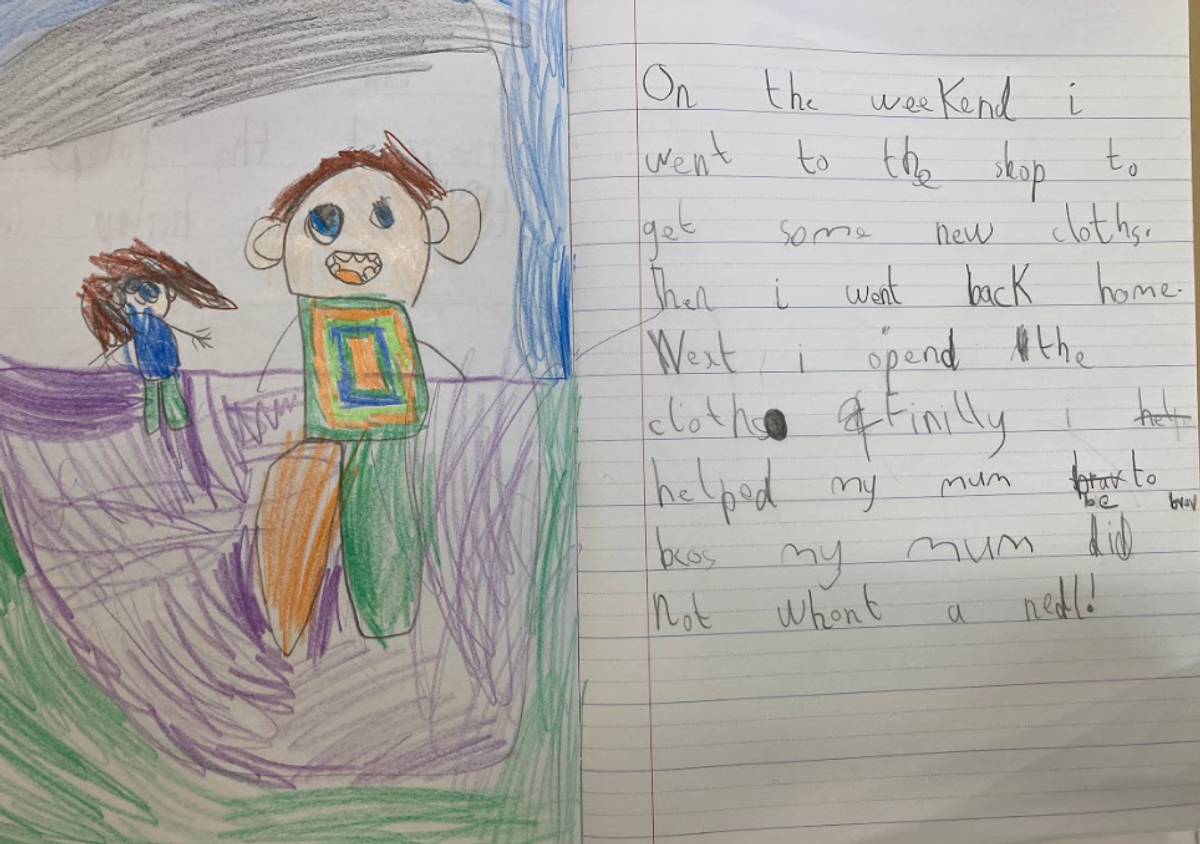 On the weekend i
went to the shop to
get some new cloths.
Then i went back home.
Next i opend the
cloths Finilly i hel
helped my mum brav to
be brav
bcos my mum did
not whont a nedl!